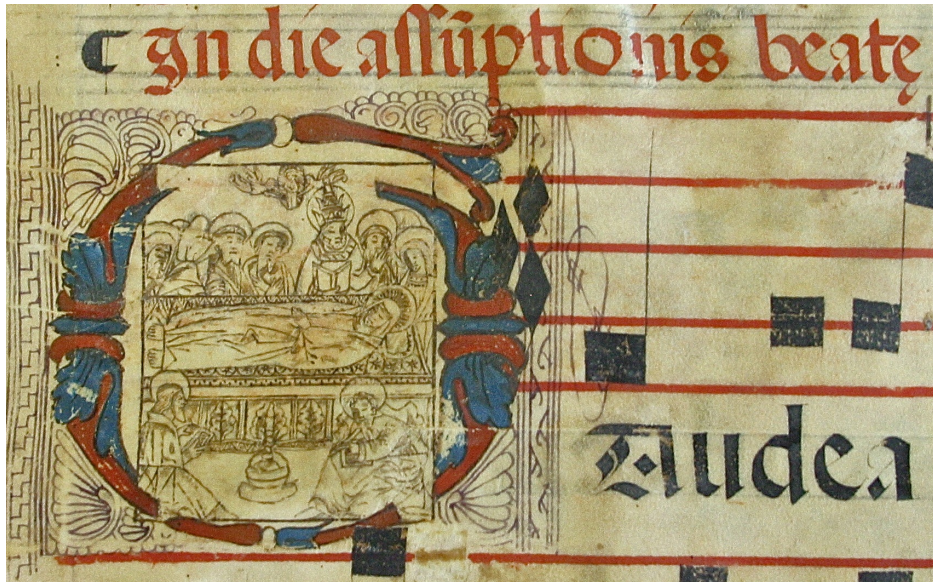 In die assūptionis beatę
Audea